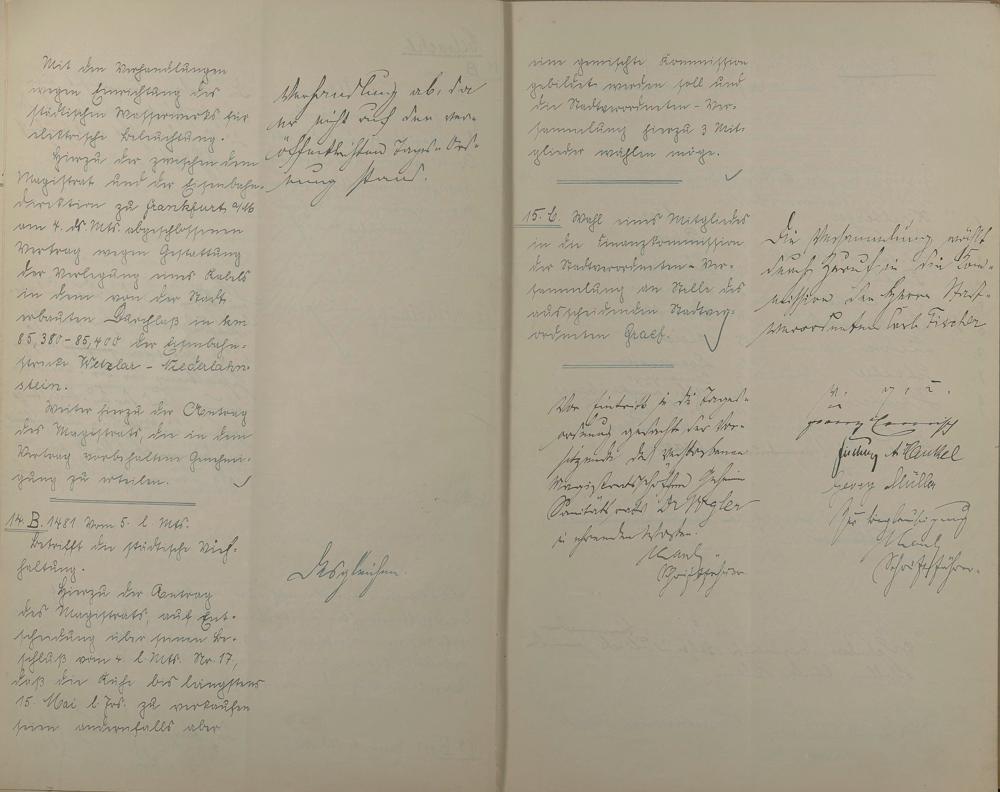 Mit den Verhandlungen
wegen Einrichtung des
städtischen Wasserwerks für
elektrische Beleuchtung.
Hierzu der zwischen dem
Magistrat und der Eisenbahn-
direktion zu Frankfurt a/M
am 4. ds Mts. abgeschlossenen
Vertrag wegen Gestattung
der Verlegung eines Kabels
in dem von der Stadt
erbauten Durchlaß in km
85,380-85,400 der Eisenbahn-
strecke Wetzlar - Niederlahn-
stein.
Weiter hierzu der Antrag
des Magistrats, die in dem
Vertrag vorbehaltene Genehmi-
gung zu erteilen.
14. B. 1481 vom 5. l. Mts.
Betrifft die städtische Vieh-
haltung.
Hierzu der Antrag
des Magistrats, auf Ent-
scheidung über seinen Be-
schluß vom 4. l. Mts. Nr. 17,
daß die Kühe bis längstens
15. Mai l. Jrs. zu verkaufen
seien andernfalls aber
Verhandlung ab, da
er nicht auf der ver-
öffentlichten Tages-Ord-
nung stand.
Desgleichen.
eine gemischte Kommission
gebildet werden soll und
die Stadtverordneten-Ver-
sammlung hierzu 3 Mit-
glieder wählen möge.
15. C. Wahl eines Mitgliedes
in die Finanzkommission
der Stadtverordneten-Ver-
sammlung an Stelle des
ausscheidenden Stadtver-
ordneten Graef.
Die Versammlung wählt
durch Zuruf in die Kom-
mission den Herrn Stadt-
verordneten Carl Fischer
Vor Eintritt in die Tages-
ordnung gedachte der Vor-
sitzende des verstorbenen
Magistratsschöffen Geheim
Sanitätsrats Dr
in ehrenden Worten.
Schriftführer
v. g. u.
Georg
Ludwig
Georg Müller
Zur Beglaubigung
Schriftführer.